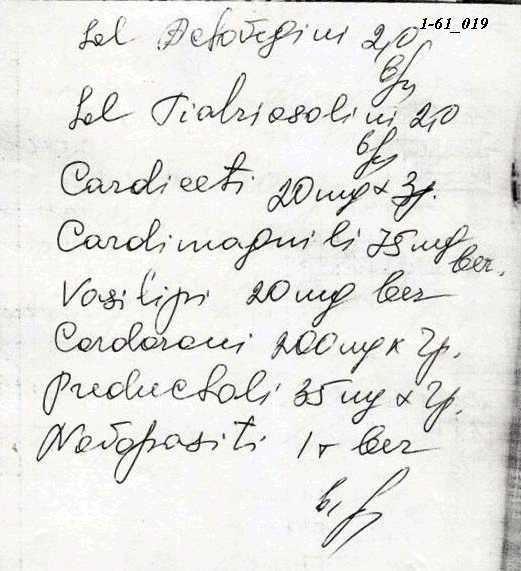 1-61_019
Sol Actovegini 2,0
в/м
Sol Tiatriasolini 2,0
в/м
Cardiceti 20 mg x 3р.
Cardimagnili 75 mg
вег.
Vasilipi 20 mg вег
Cordaroni 200 mg x 2р.
Preductali 35 mg x 2р.
Novopassiti 1т вег